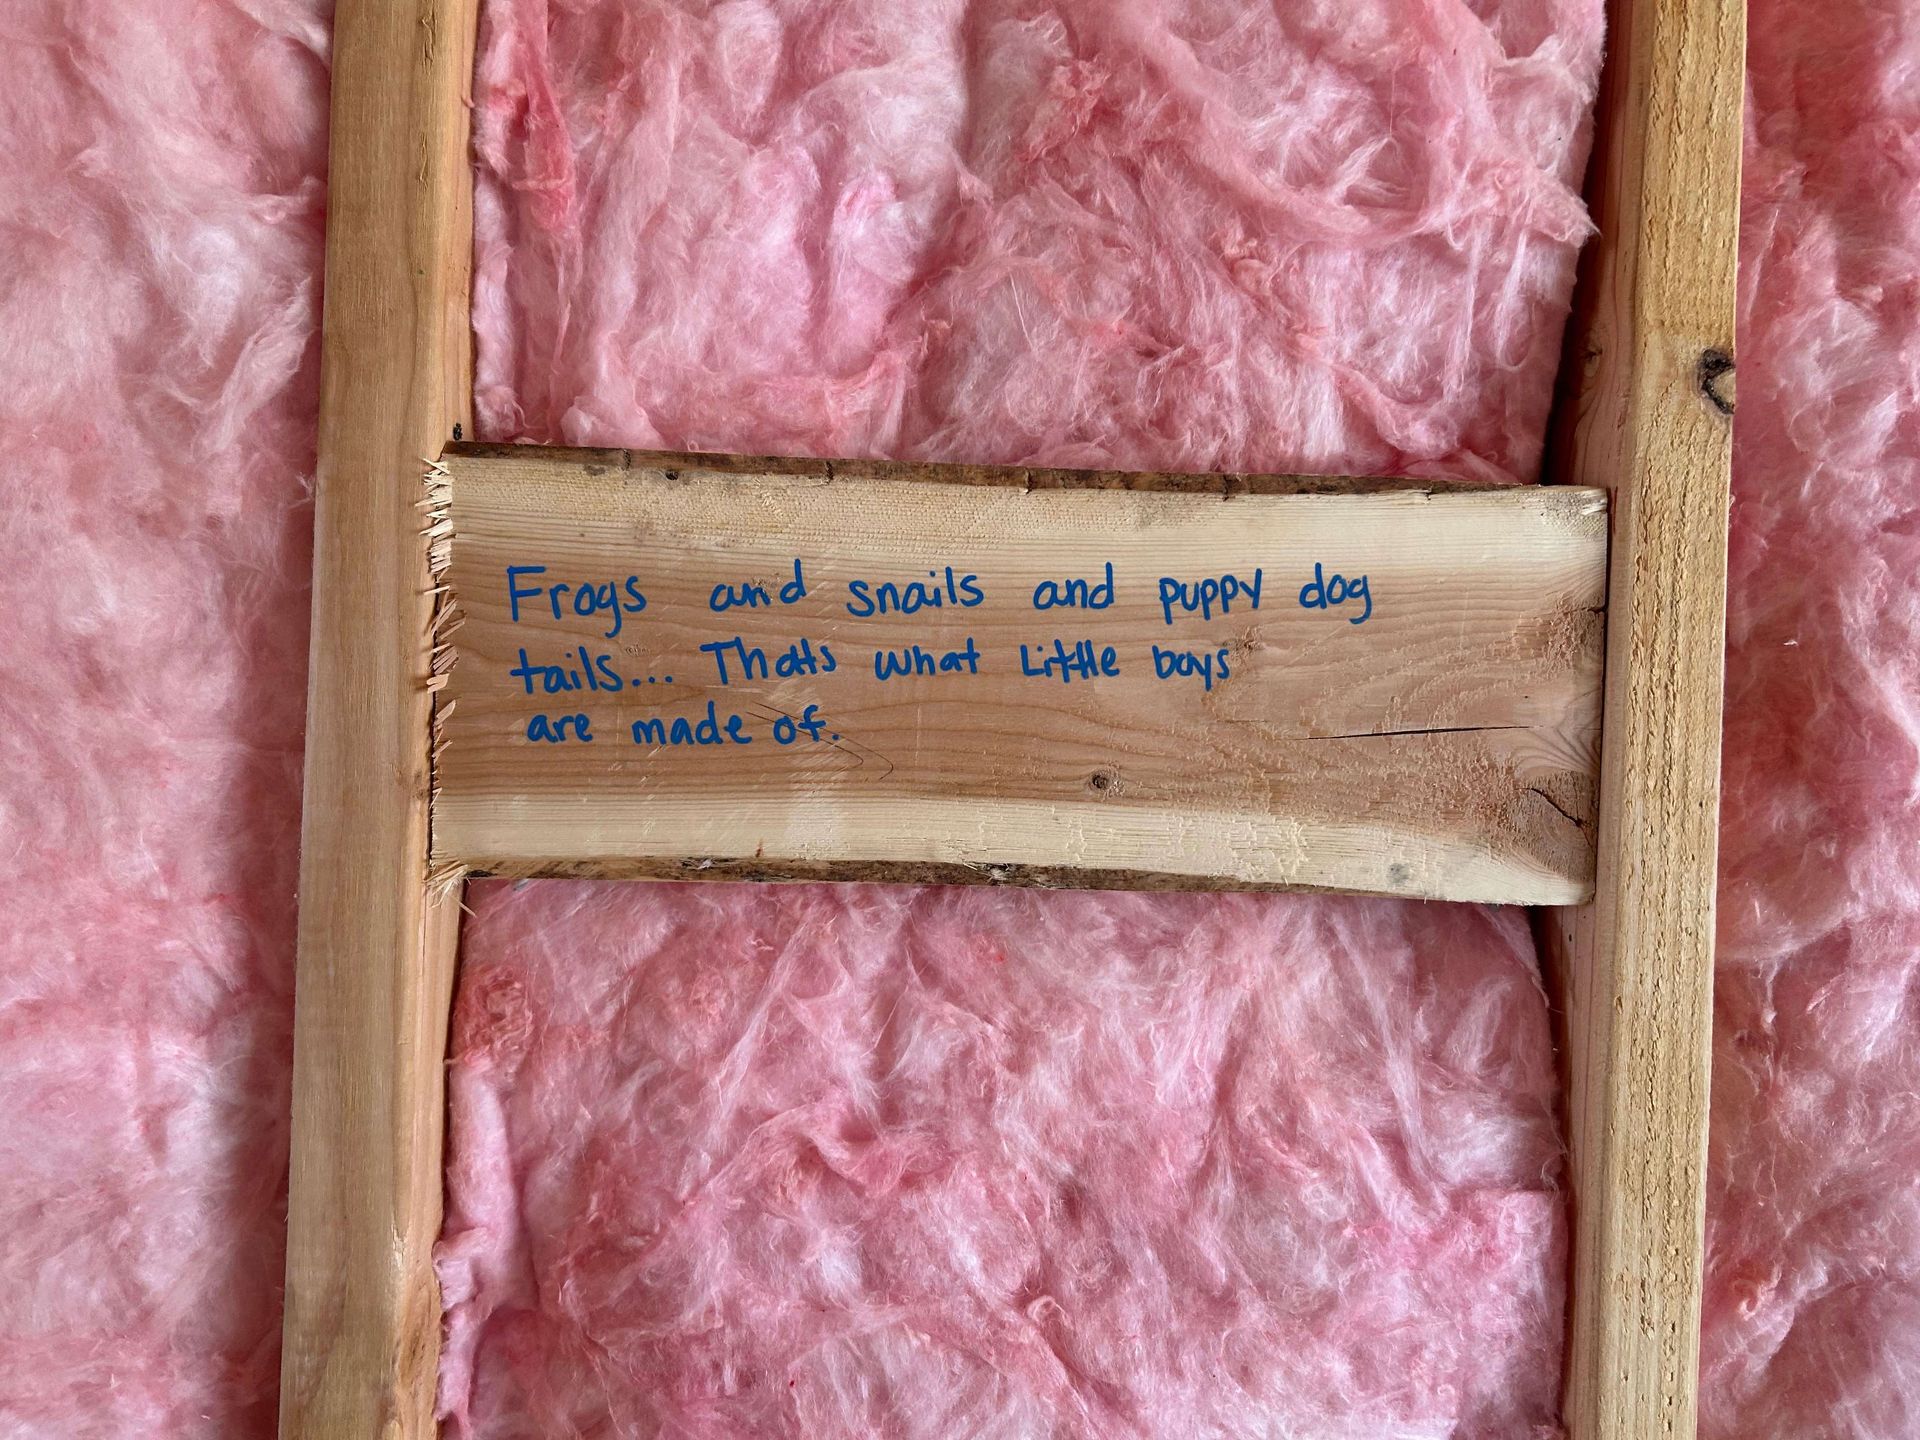 Frogs and snails and puppy dog
tails... Thats what Little boys
are made of.